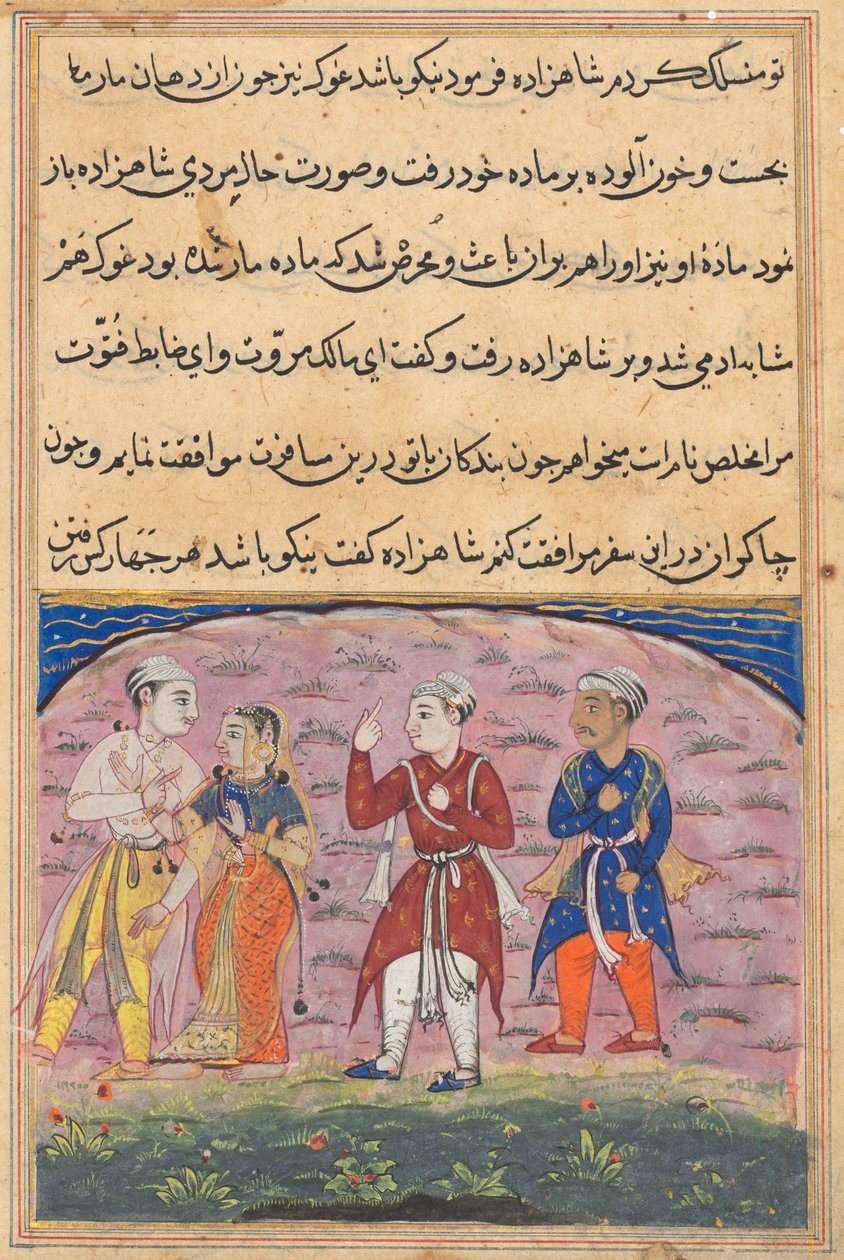 تو منسلک کردم شاهزاده فرمود نیکو باشد غوک نیز جون از دهان مار
بجست و خون آلوده بر ماده خود رفت و صورت حال مردي شاهزاده باز
نمود مادۀ او نیز او را هم بران باعث و محرض شد که ماده مار شده بود غوک هم
مشابه ادمي شد و بر شاهزاده رفت و کفت اي مالک مروّت و اي ضابط فُتوّت
مرا مخلص نام است میخواهم جون بندکان با تو درین مسافرت موافقت نمایم و جون
چاکران در این سفر مرافقت کنم شاهزاده کفت نیکو باشد هر جهار کس رفتن